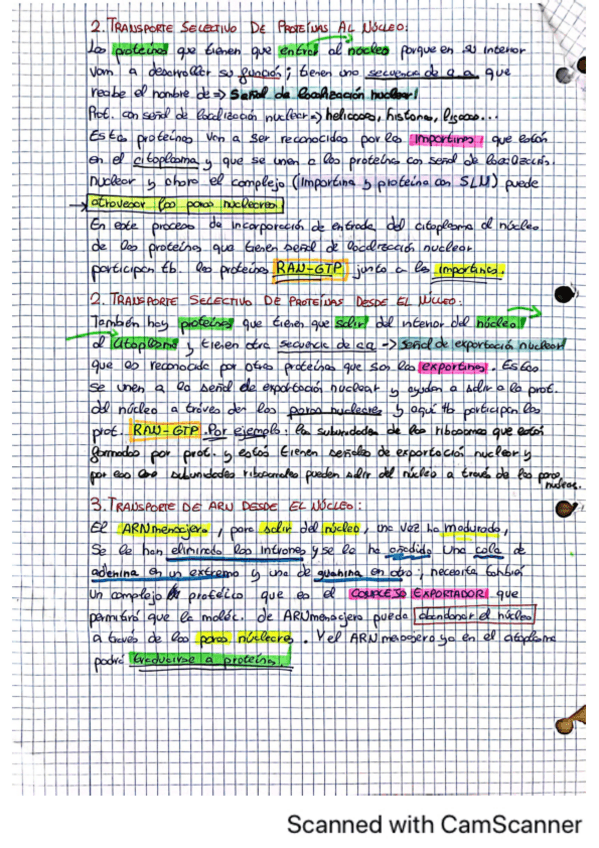 2. TRANSPORTE SELECTIVO DE PROTEÍNAS AL NÚCLEO:
Las proteínas que tienen que entrar al núcleo porque en su interior
van a desarrollar su función; tienen una secuencia de a.a que
recibe el nombre de => Señal de localización nuclear!
Prot. con señal de localización nuclear => helicasas, histonas, ligasas...
Estas proteínas van a ser reconocidas por las importinas, que están
en el citoplasma y que se unen a las proteínas con señal de localización
nuclear y ahora el complejo (importina y proteína con SLN) puede
→ atravesar los poros nucleares
En este proceso de incorporación de entrada del citoplasma al núcleo
de las proteínas que tienen señal de localización nuclear
participan tb. las proteínas RAN-GTP junto a las importinas.
2. TRANSPORTE SELECTIVO DE PROTEÍNAS DESDE EL NÚCLEO:
También hay proteínas que tienen que salir del interior del núcleo
al citoplasma, tienen otra secuencia de aa -> señal de exportación nuclear
que es reconocida por otras proteínas que son las exportinas. Estas
se unen a la señal de exportación nuclear y ayudan a salir a la prot.
del núcleo a través de los poros nucleares y aquí tb participan las
prot. RAN-GTP. Por ejemplo: las subunidades de los ribosomas que están
formadas por prot. y estas tienen señales de exportación nuclear y
por eso las subunidades ribosomales pueden salir del núcleo a través de los poros
nucleares.
3. TRANSPORTE DE ARN DESDE EL NÚCLEO:
El ARNmensajero, para salir del núcleo, una vez ha madurado,
se le han eliminado los intrones y se le ha añadido una cola de
adenina en un extremo y una de guanina en otro; necesita también
un complejo proteico que es el COMPLEJO EXPORTADOR que
permitirá que la moléc. de ARNmensajero pueda abandonar el núcleo
a través de los poros nucleares. Y el ARNmensajero ya en el citoplasma
podrá traducirse a proteínas.
Scanned with CamScanner